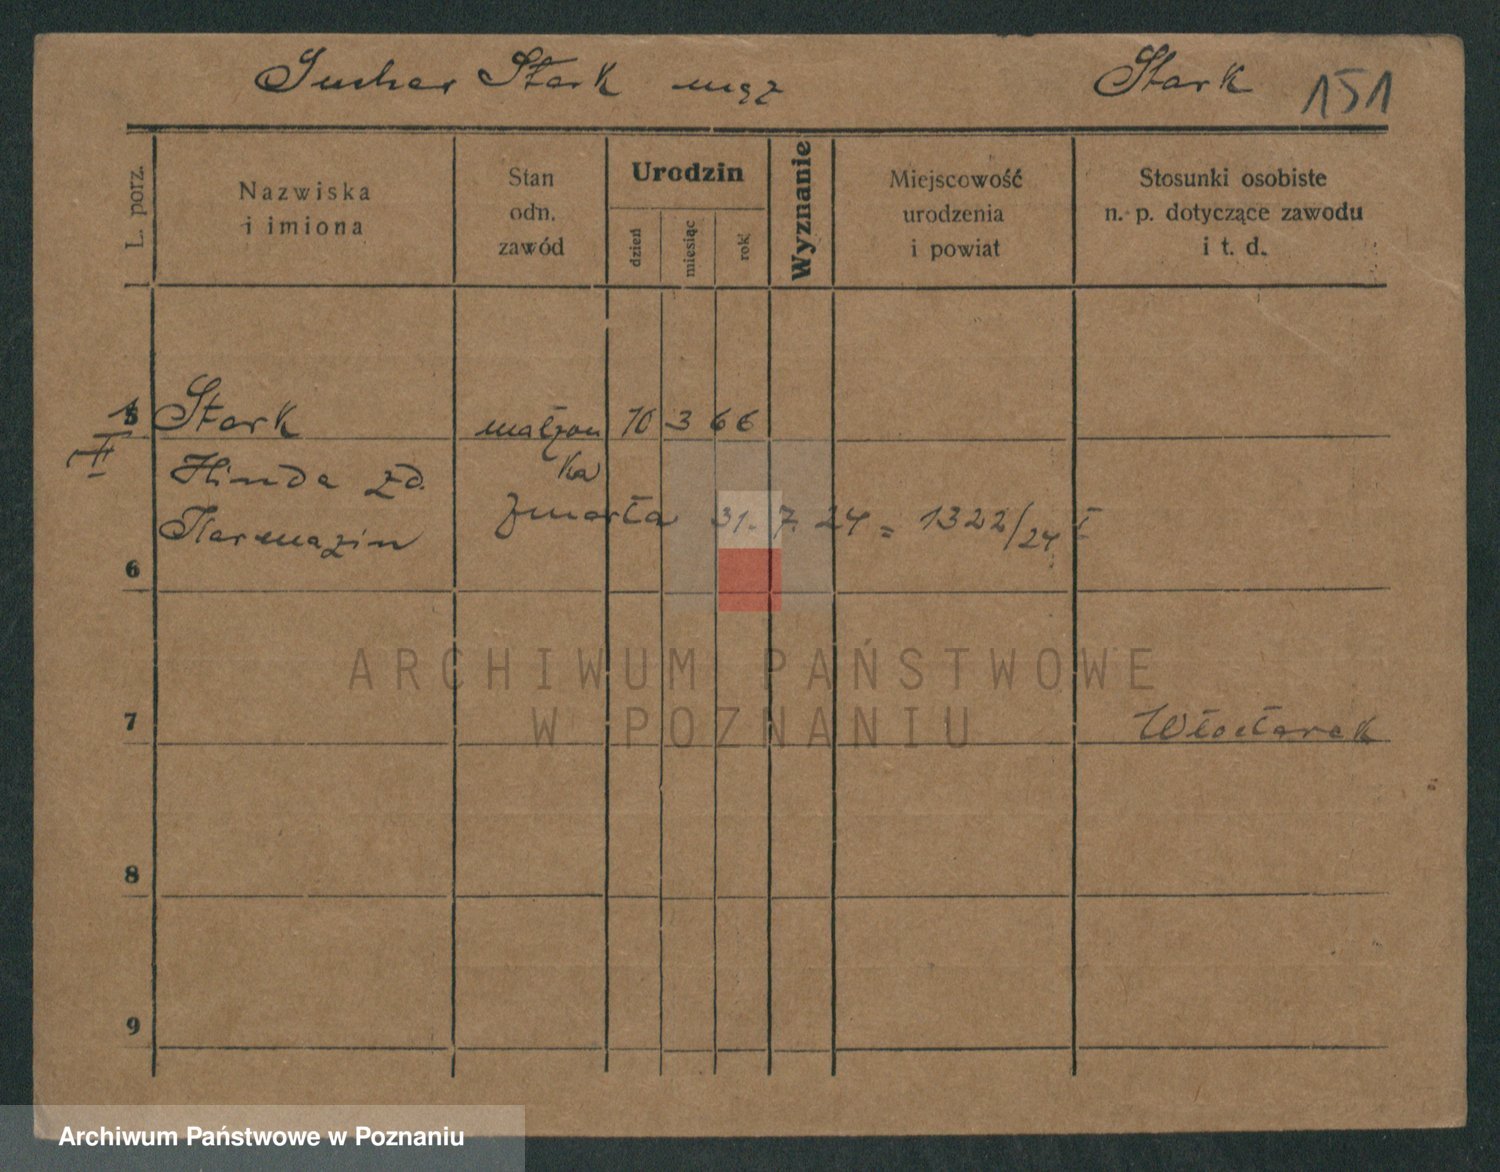 Suchar Stark mąż Stark 151
L. porz.
Nazwiska
i imiona
Stan
odn.
zawód
Urodzin
dzień
miesiąc
rok
Wyznanie
Miejscowość
urodzenia
i powiat
Stosunki osobiste
n. p. dotyczące zawodu
i t. d.
5 Stark małżon 10 3 66
II
Hinda zd. ka
Karmazin zmarła 31. 7. 24 = 1322/24 I
6
ARCHIWUM PAŃSTWOWE
W POZNANIU
7 Włocławek
8
9
Archiwum Państwowe w Poznaniu